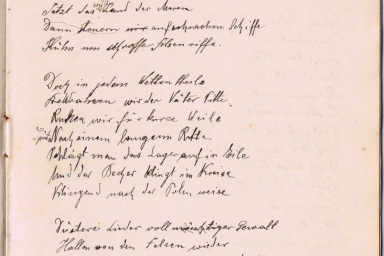 Jetzt das Land der
Dann steuern wir auf schwachem Schiffe
Kühn um schroffe Felsenriffe.
Doch in jedem Weltentheile
Bewahren wir der Väter Sitte.
wir für kurze Weile
Nach einem langem Ritte
Schlägt man das Lager auf in Eile
Und der Becher klingt im Kreise
Klingend nach der Polen weise
Düstere Lieder voll mächtiger Gewalt
Hallen von den Felsen wieder